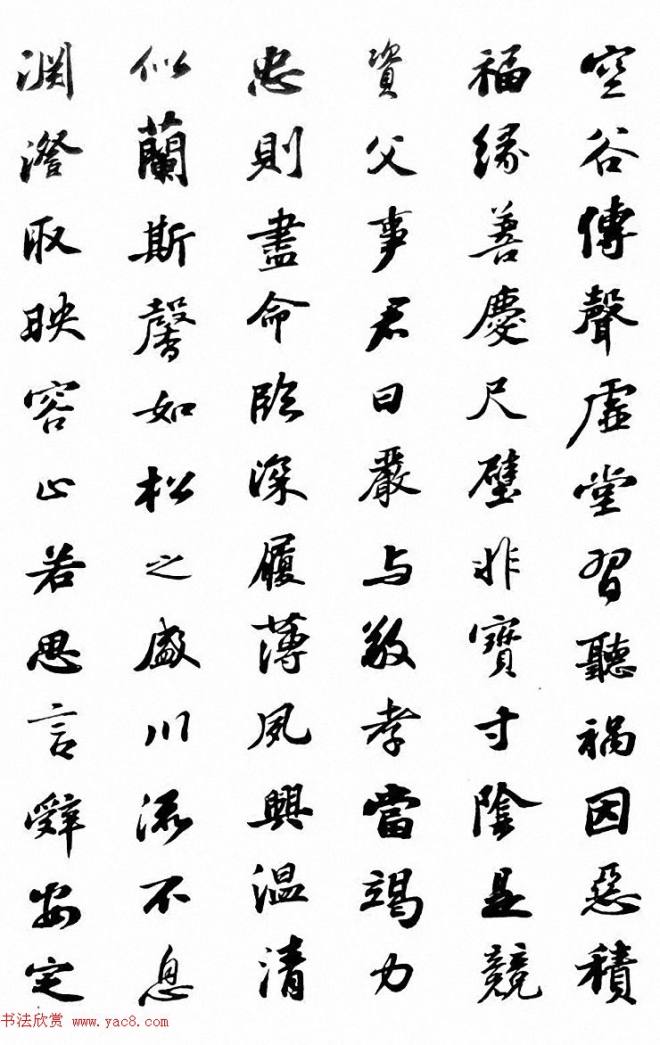 空谷傳聲虛堂習聽禍因惡積
福緣善慶尺璧非寶寸陰是競
資父事君曰嚴与敬孝當竭力
忠則盡命臨深履薄夙興温清
似蘭斯馨如松之盛川流不息
淵澄取映容止若思言辭安定
书法欣赏 www.yac8.com